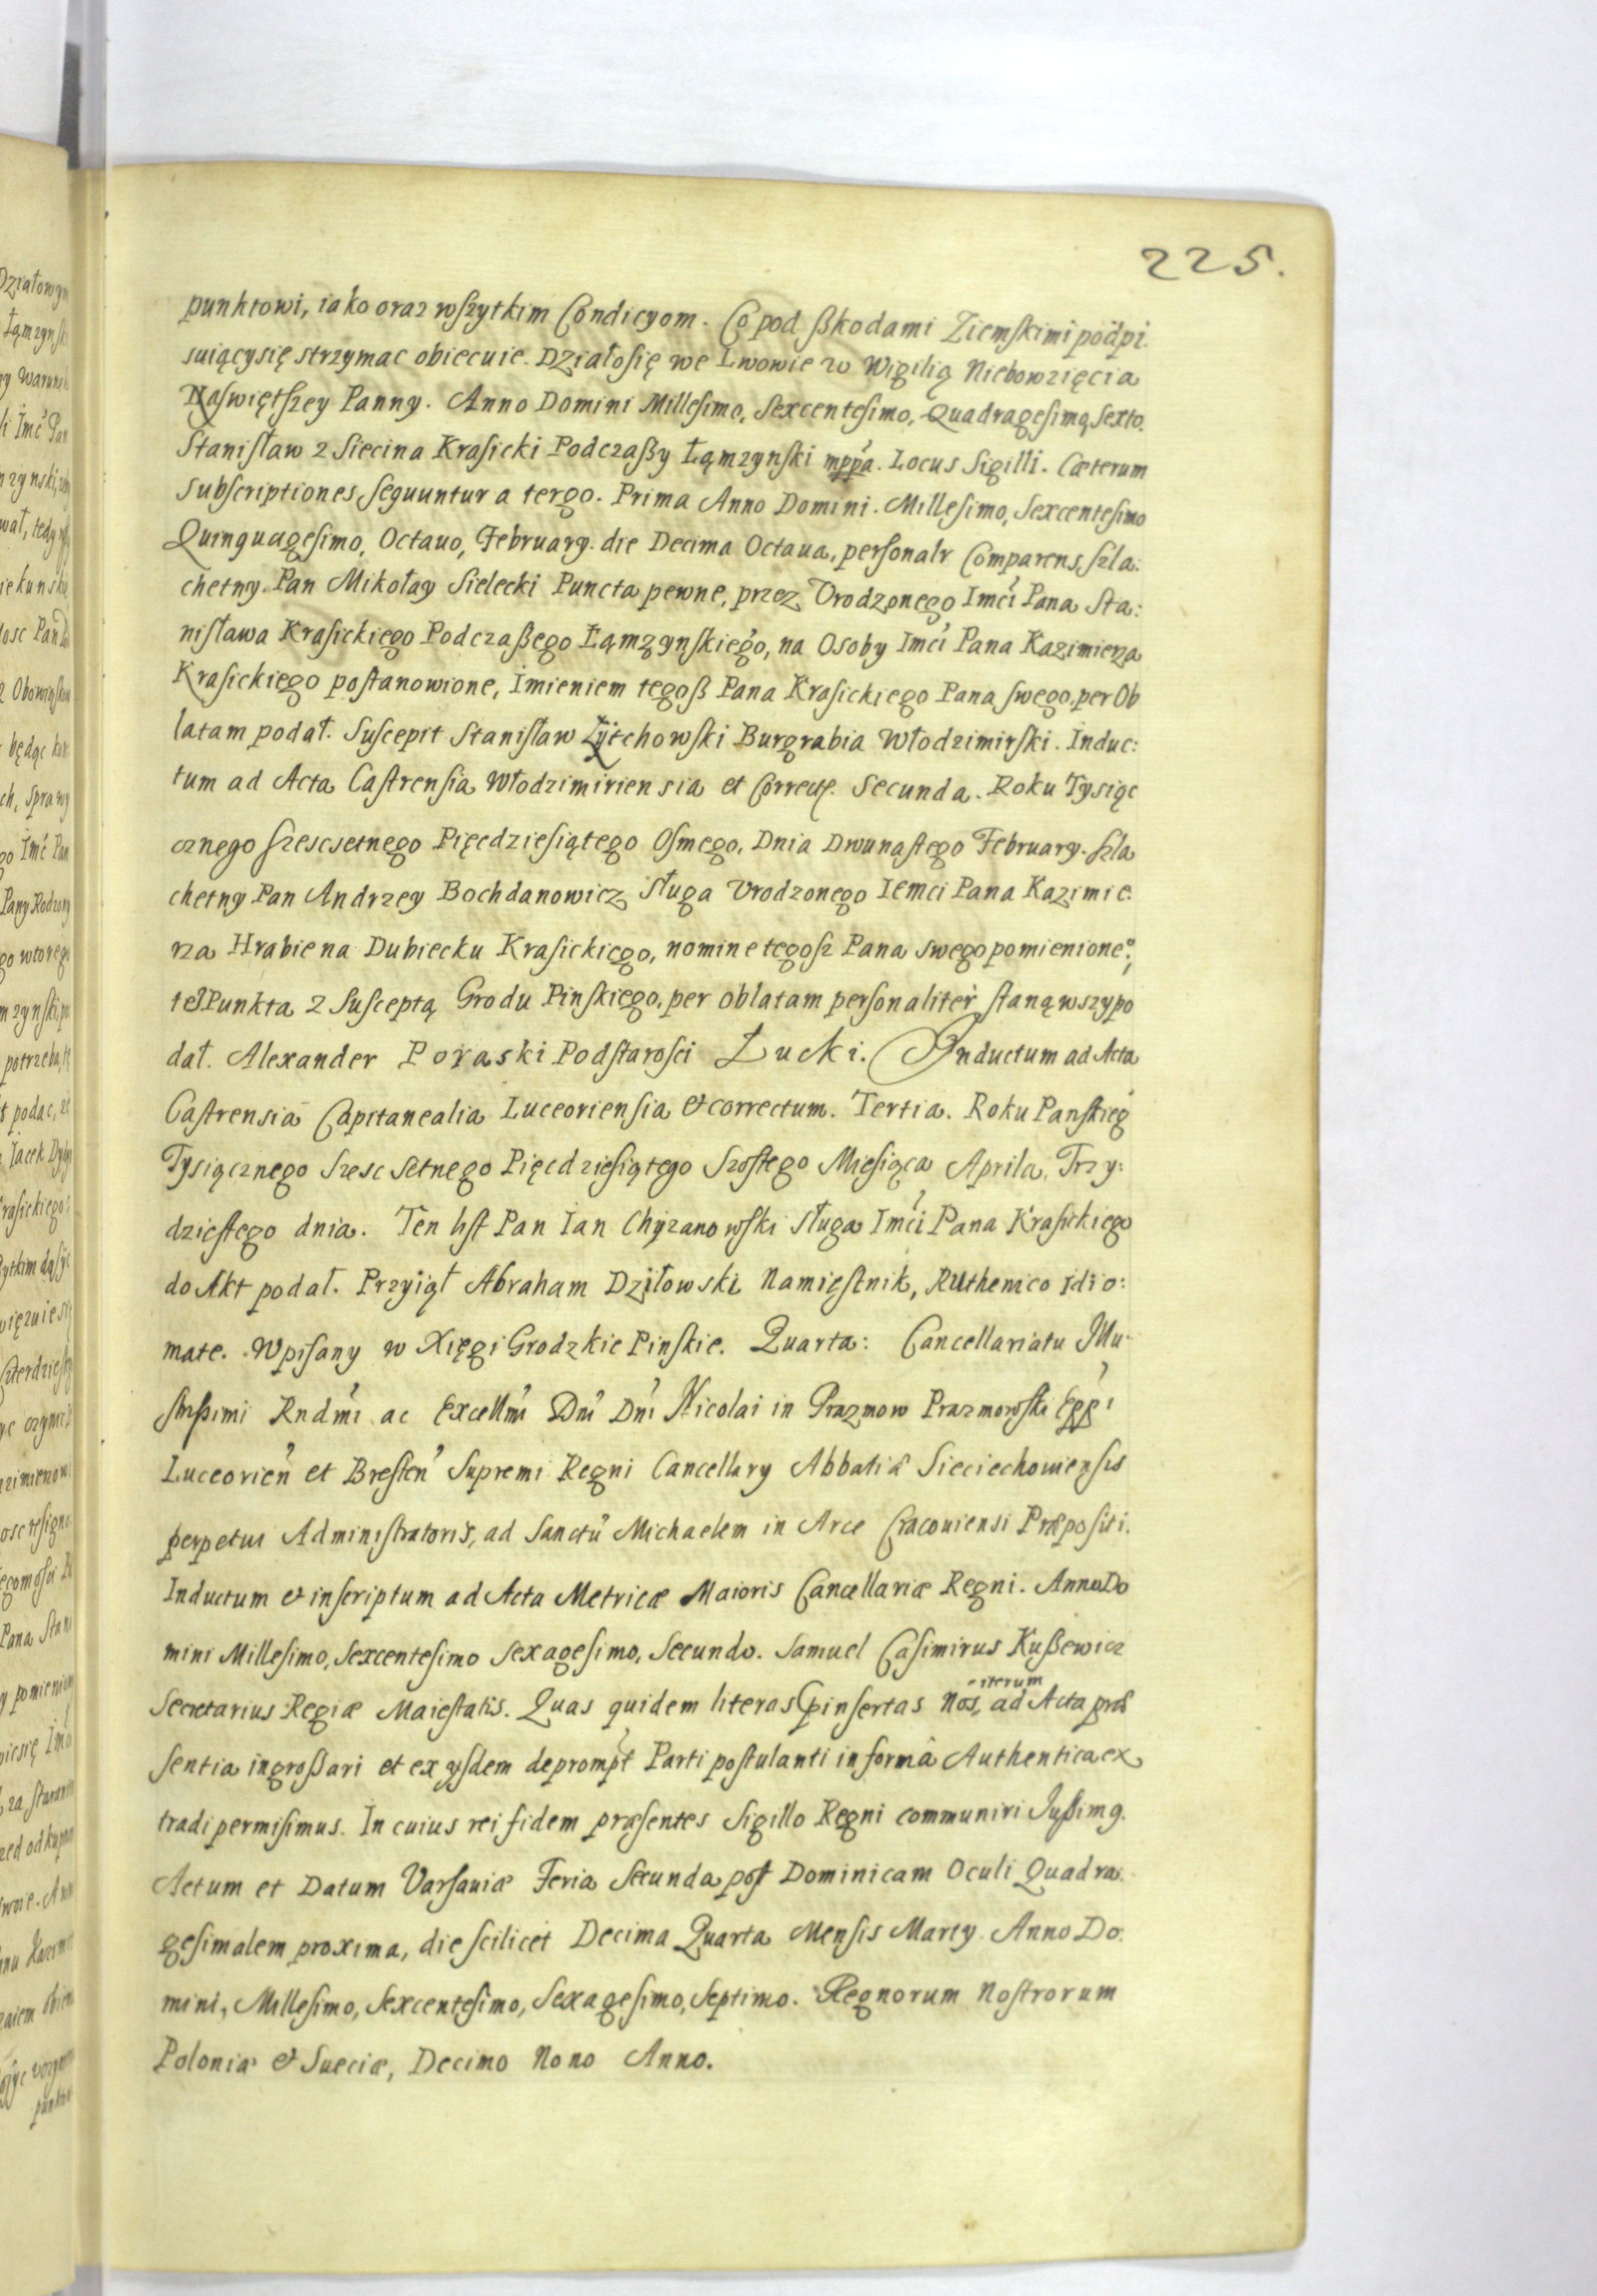 225.
punktowi, iako oraz wszytkim Condicyom. Co pod ßkodami Ziemskimi podpi.
suiącysię strzymac obiecuie. Działosię we Lwowie w Wigilią Niebowzięcia
Naswiętszey Panny. Anno Domini Millesimo, Sexcentesimo, Quadragesimo, Sexto.
Stanisław z Siecina Krasicki Podczaßy Łąmzynski mppa. Locus Sigilli. Cæterum
Subscriptiones seguuntur a tergo. Prima Anno Domini. Millesimo, Sexcentesimo
Quinguagesimo, Octauo, February. die Decima Octaua, personalr Comparens, szla:
chetny. Pan Mikołay Sielecki Puncta pewne, przez Vrodzonego Imci Pana Sta:
nisława Krasickiego Podczaßego Łąmzynskiego, na Osoby Imci Pana Kazimierza
Krasickiego postanowione, imieniem tegoß Pana Krasickiego Pana swego, per Ob
latam podał. Suscepit Stanisław Żytchowski Burgrabia Włodzimirski. Induc:
tum ad Acta Castrensia Włodzimiriensia et Correct. Secunda. Roku Tysiąc
cznego szescsetnego Pięcdziesiątego Osmego, Dnia Dwunastego February. szla
chetny Pan Andrzey Bochdanowicz, sługa Vrodzonego Iemci Pana Kazimie:
rza Hrabie na Dubiecku Krasickiego, nomine tegosz Pana swego pomienione°,
te Punkta z susceptą Grodu Pinskiego, per oblatam personaliter stanąwszy po
dał. Alexander Poraski Podstarosci Łucki. Inductum ad Acta
Castrensia Capitanealia Luceoriensia & correctum. Tertia. Roku Panskieg
Tysiącznego Szesc setnego Pięcdziesiątego Szostego Miesiąca Aprila, Trzy:
dziestego dnia. Ten list Pan Ian Chyzanowski sługa Imci Pana Krasickiego
do Akt podał. Przyiął Abraham Dziłowski Namiestnik, Ruthenico idio:
mate. Wpisany w Xięgi Grodzkie Pinskie. Quarta: Cancellariatu Illu-
strissimi Rndmi ac Excellmi Dni Dni Nicolai in Prazmow Prazmowski Eppi
Luceorien et Bresten Supremi Regni Cancellary Abbatiæ Sieciechouiensis
perpetui Administratoris, ad Sanctu Michaelem in Arce Cracouiensi Præpositi.
Inductum & inscriptum ad Acta Metricæ Maioris Cancellariæ Regni. Anno Do
mini Millesimo, Sexcentesimo Sexagesimo, Secundo. Samuel Casimirus Kußewicz
Secretarius Regiæ Maiestatis. Quas quidem literas pinsertas Nos, iterum ad Acta præ
sentia ingroßari et ex ysdem deprompt Parti postulanti in forma Authentica ex
tradi permisimus. In cuius rei fidem præsentes Sigillo Regni communiri Jußimq.
Actum et Datum Varsauiæ Feria Secunda post Dominicam Oculi Quadra:
gesimalem proxima, die scilicet Decima Quarta Mensis Marty Anno Do:
mini, Millesimo, Sexcentesimo, Sexagesimo, Septimo. Regnorum Nostrorum
Poloniæ & Sueciæ, Decimo Nono Anno.